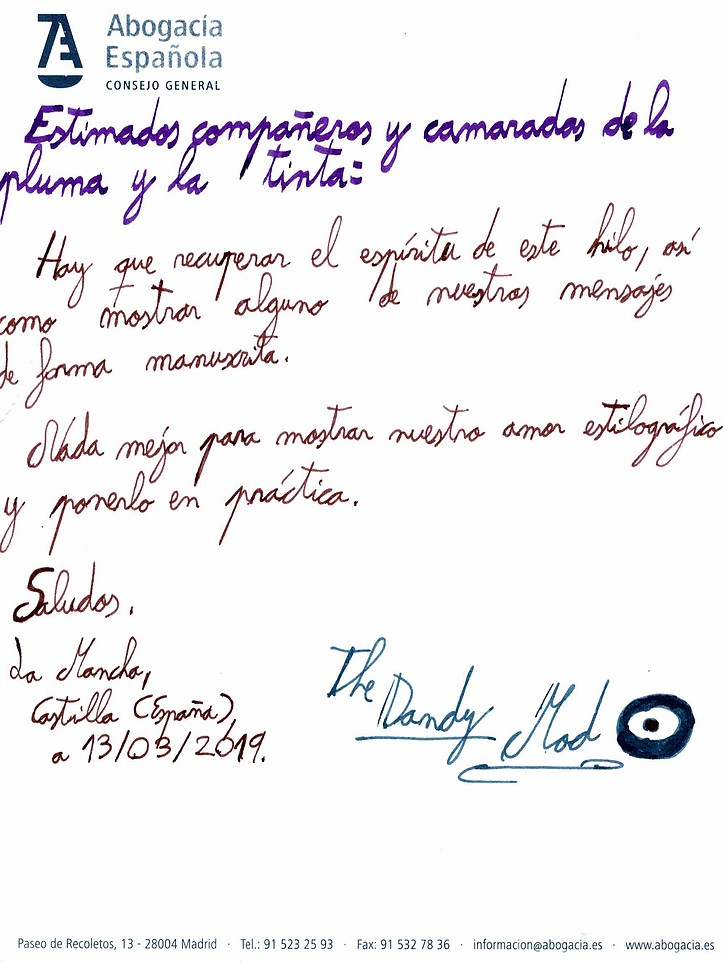 Abogacía
Española
CONSEJO GENERAL
Estimados compañeros y camaradas de la
pluma y la tinta:
Hay que recuperar el espíritu de este hilo, así
como mostrar alguno de nuestros mensajes
de forma manuscrita.
Nada mejor para mostrar nuestro amor estilográfico
y ponerlo en práctica.
Saludos.
La Mancha,
Castilla (España),
a 13/03/2019.
The Dandy Mod
Paseo de Recoletos, 13 - 28004 Madrid · Tel.: 91 523 25 93 · Fax: 91 532 78 36 · informacion@abogacia.es · www.abogacia.es